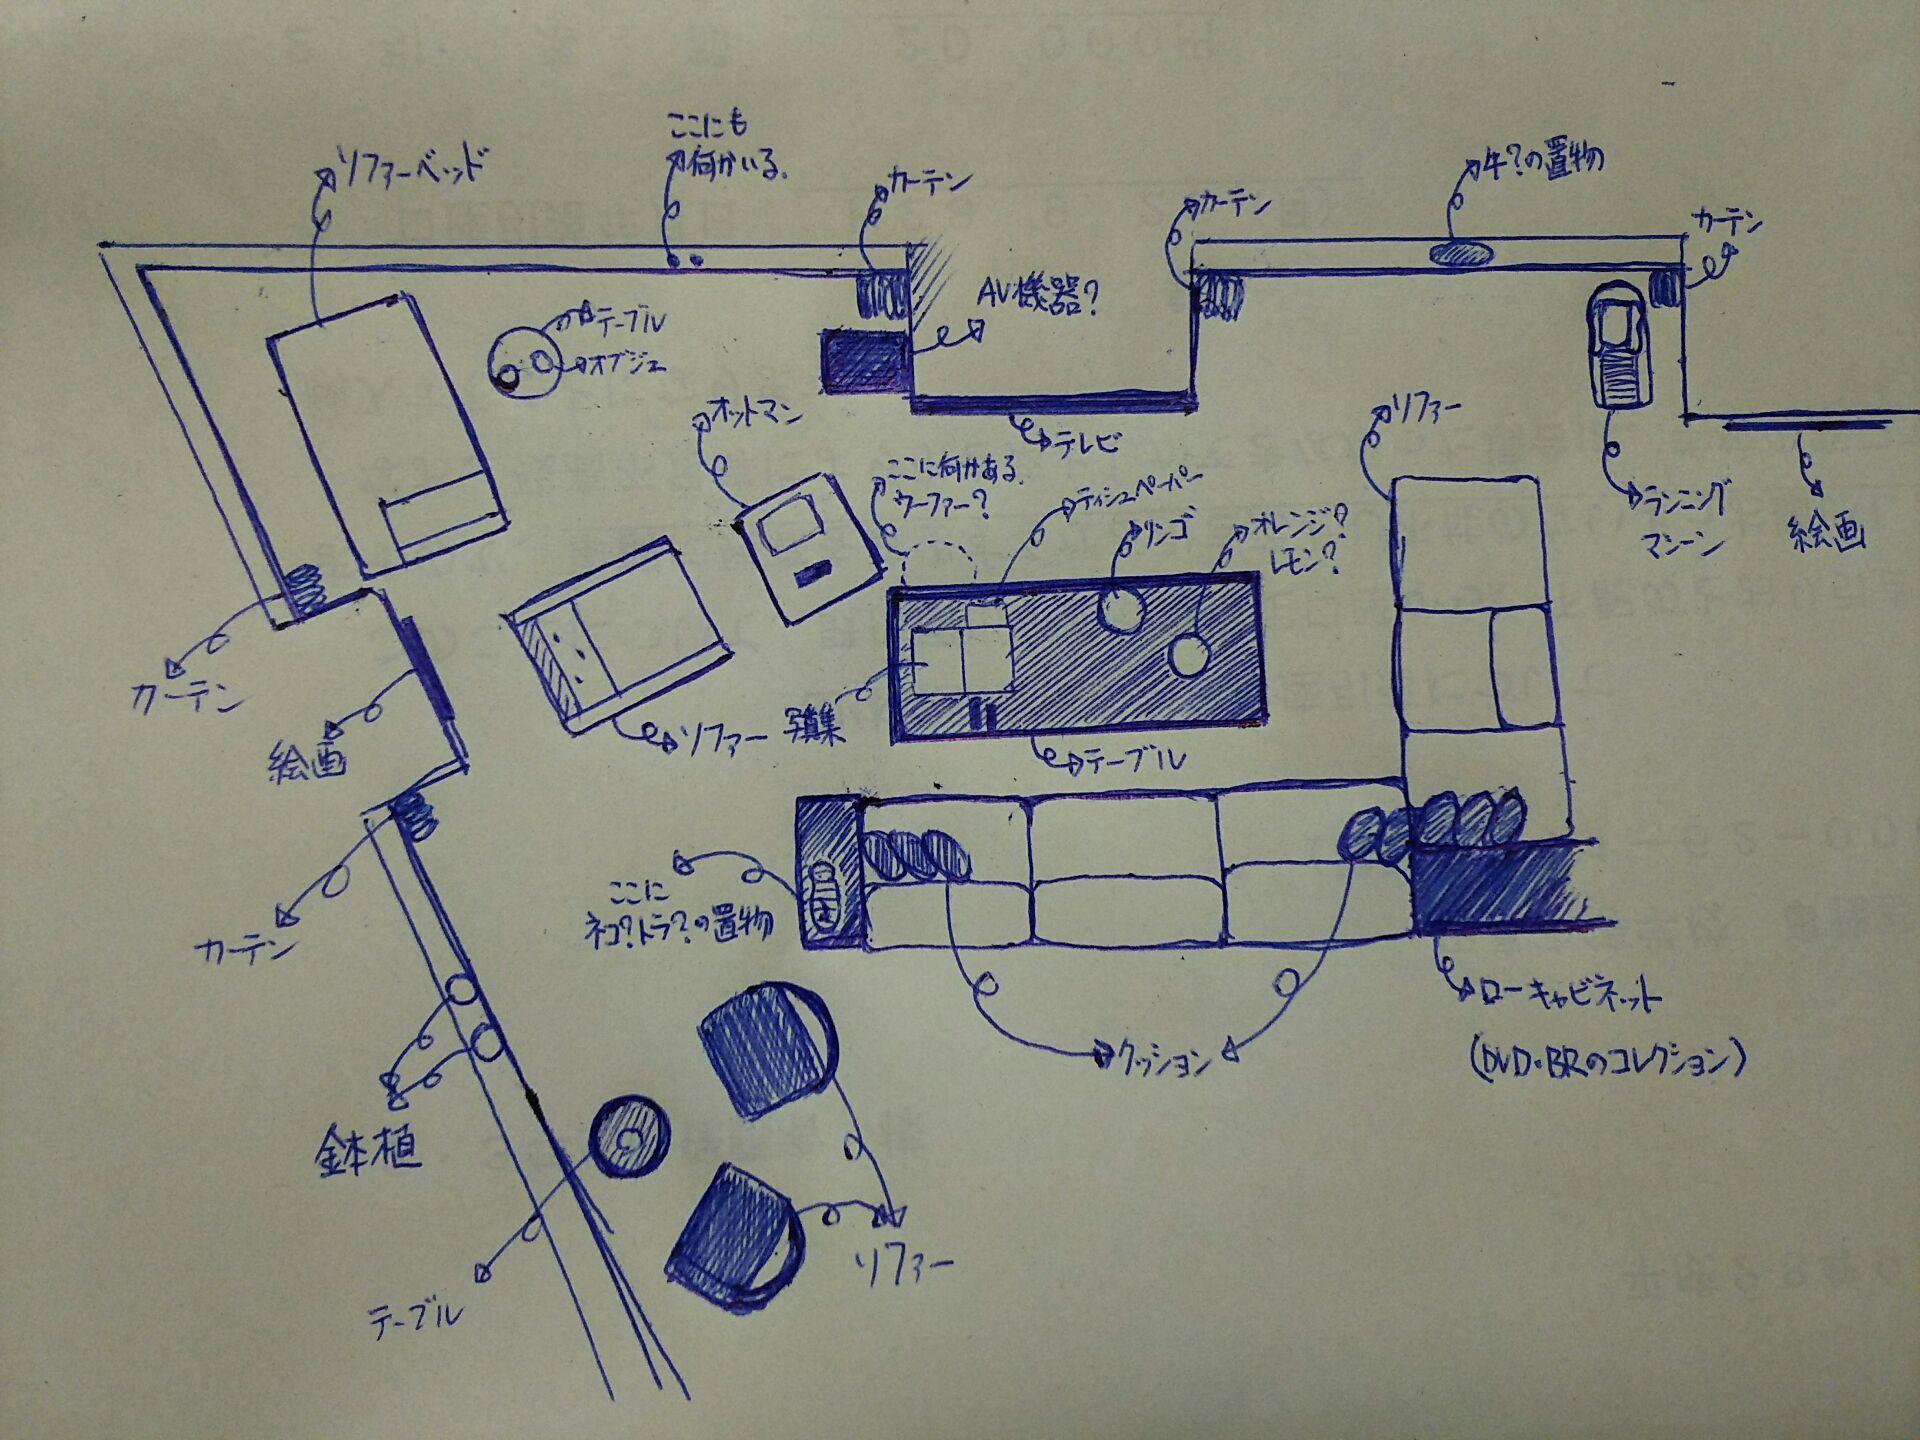 ここにも
何かいる。
ソファーベッド
カーテン
カーテン
牛?の置物
カーテン
AV機器?
テーブル
オブジェ
オットマン
テレビ
ソファー
ここに何かある。
ウーファー?
ティシュペーパー
リンゴ
オレンジ?
レモン?
ランニング
マシーン
絵画
カーテン
絵画
ソファー
写真集
テーブル
ここに
ネコ?トラ?の置物
カーテン
ローキャビネット
(DVD・BRのコレクション)
クッション
鉢植
ソファー
テーブル